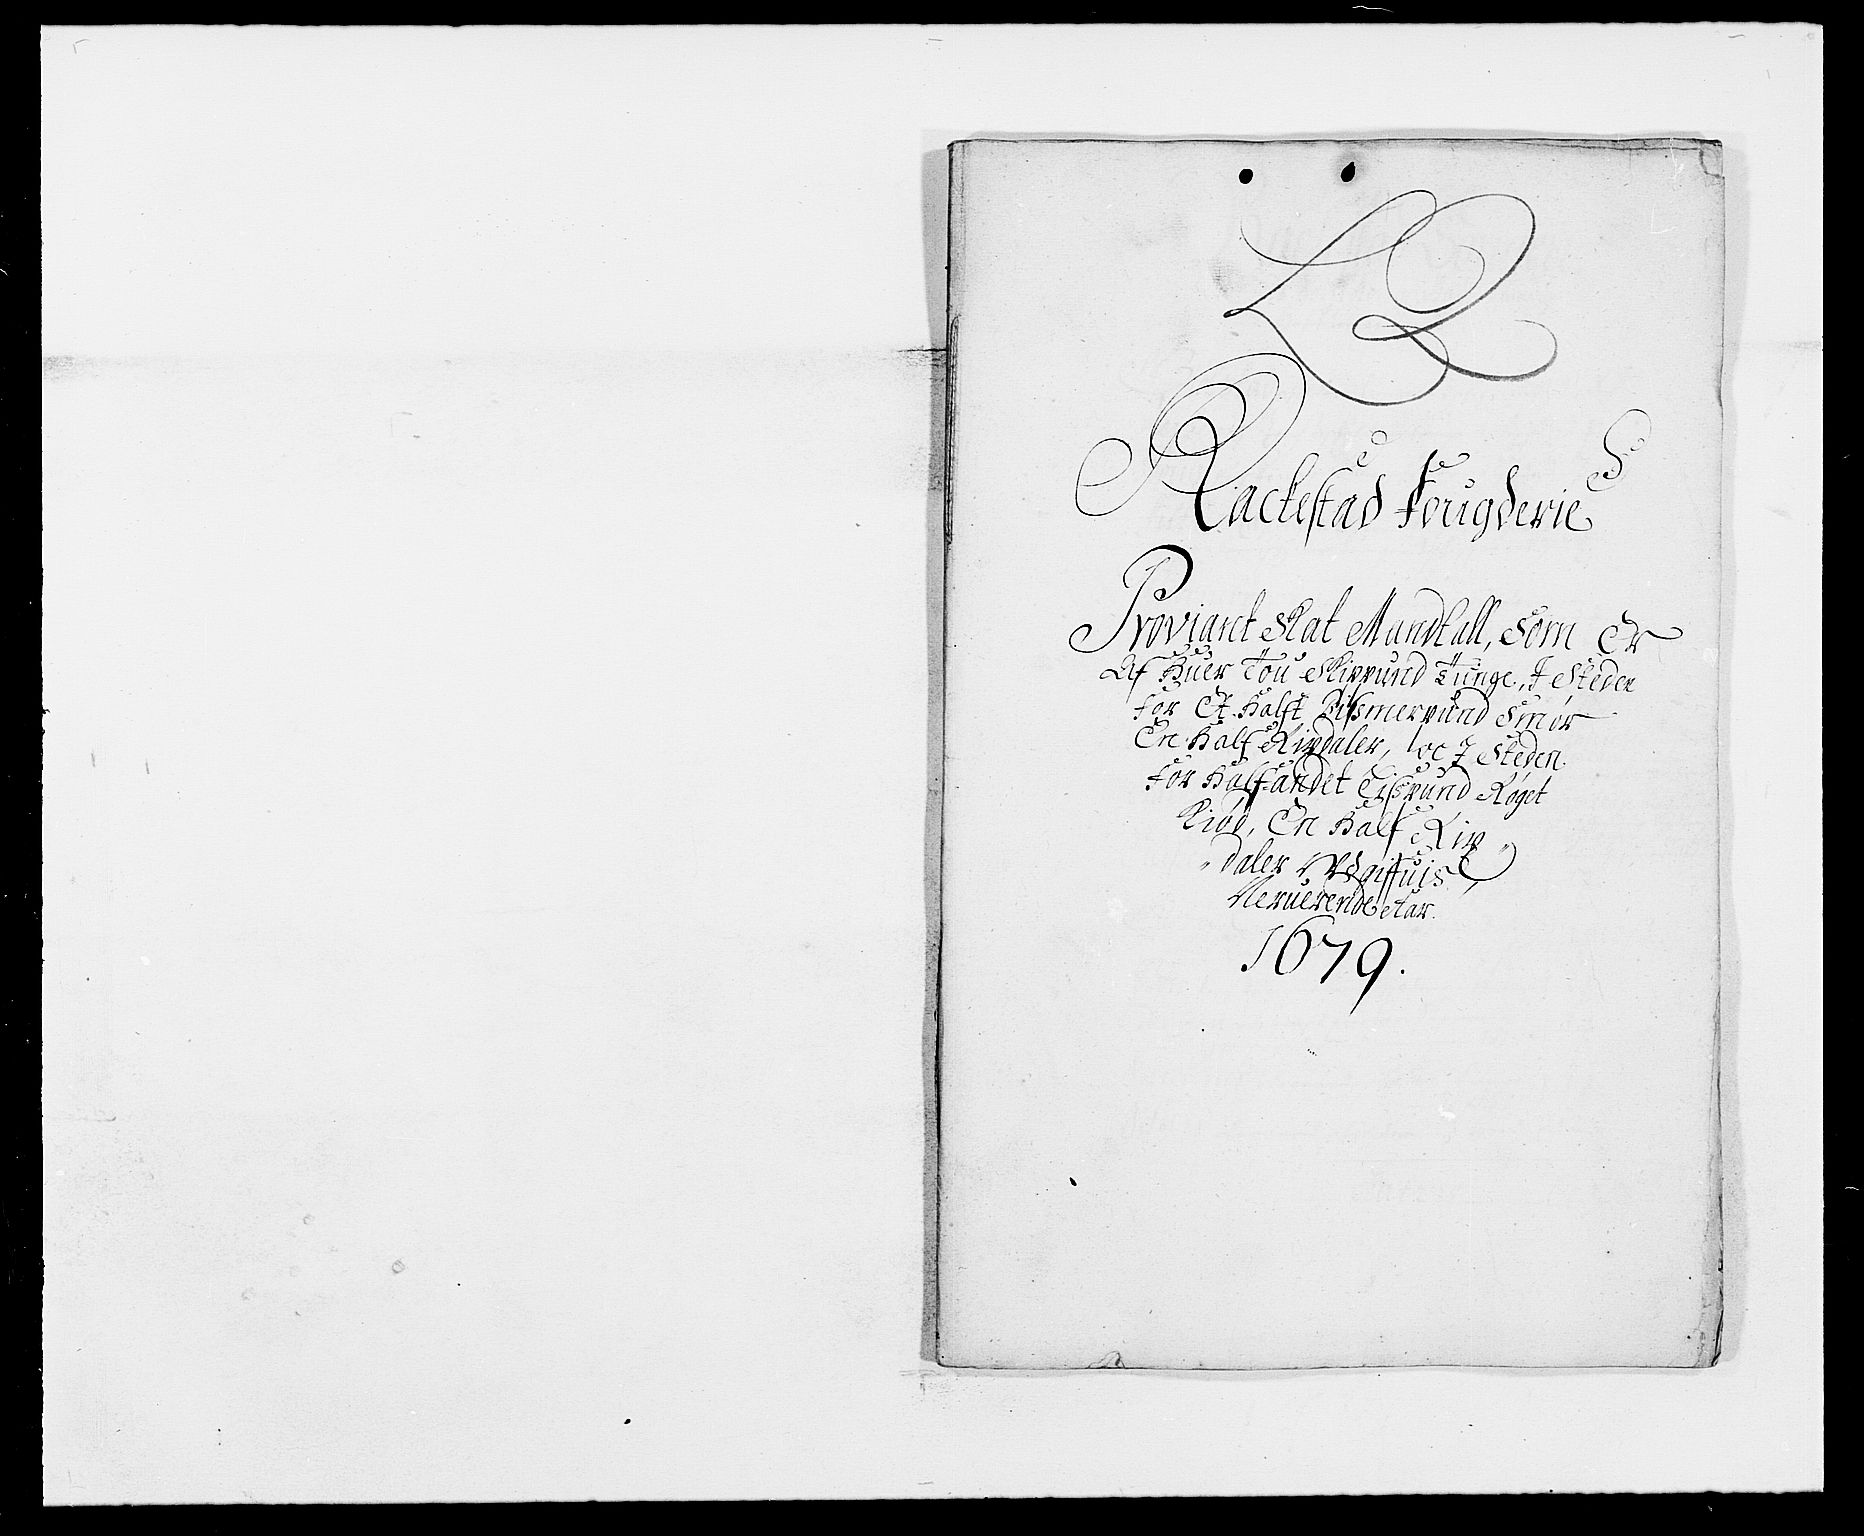 Rackestad Fougderie
Proviant Skat Mandtall, Som Er
Af Huer Tou Skippund Tunge, I Steden
for Et Halft Bismerpund Smør
En Half Rixdaler, oc I Steden
for Halfandet Lispund Røget
Kiød, En Half Rix
daler,
Neruerende Aar.
1679.